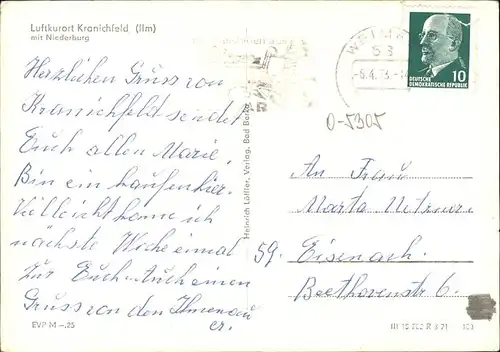 Luftkurort Kranichfeld (Ilm)
mit Niederburg
Herzlichen Gruss von
Kranichfeld sendet
Euch allen Marie,
Bin ein laufen hier.
Vielleicht kome ich
nächste Woche einmal
zur Euch. Auch einen
Gruss von den Ilmenau
er.
EVP M –.25
Heinrich Löffler, Verlag, Bad Berka
WEIMAR
53
-6.4.73
DEUTSCHE
DEMOKRATISCHE REPUBLIK
10
O-5305
An Frau
Marta
59. Eisenach.
Beethovenstr 6.
III 18 R 3 71